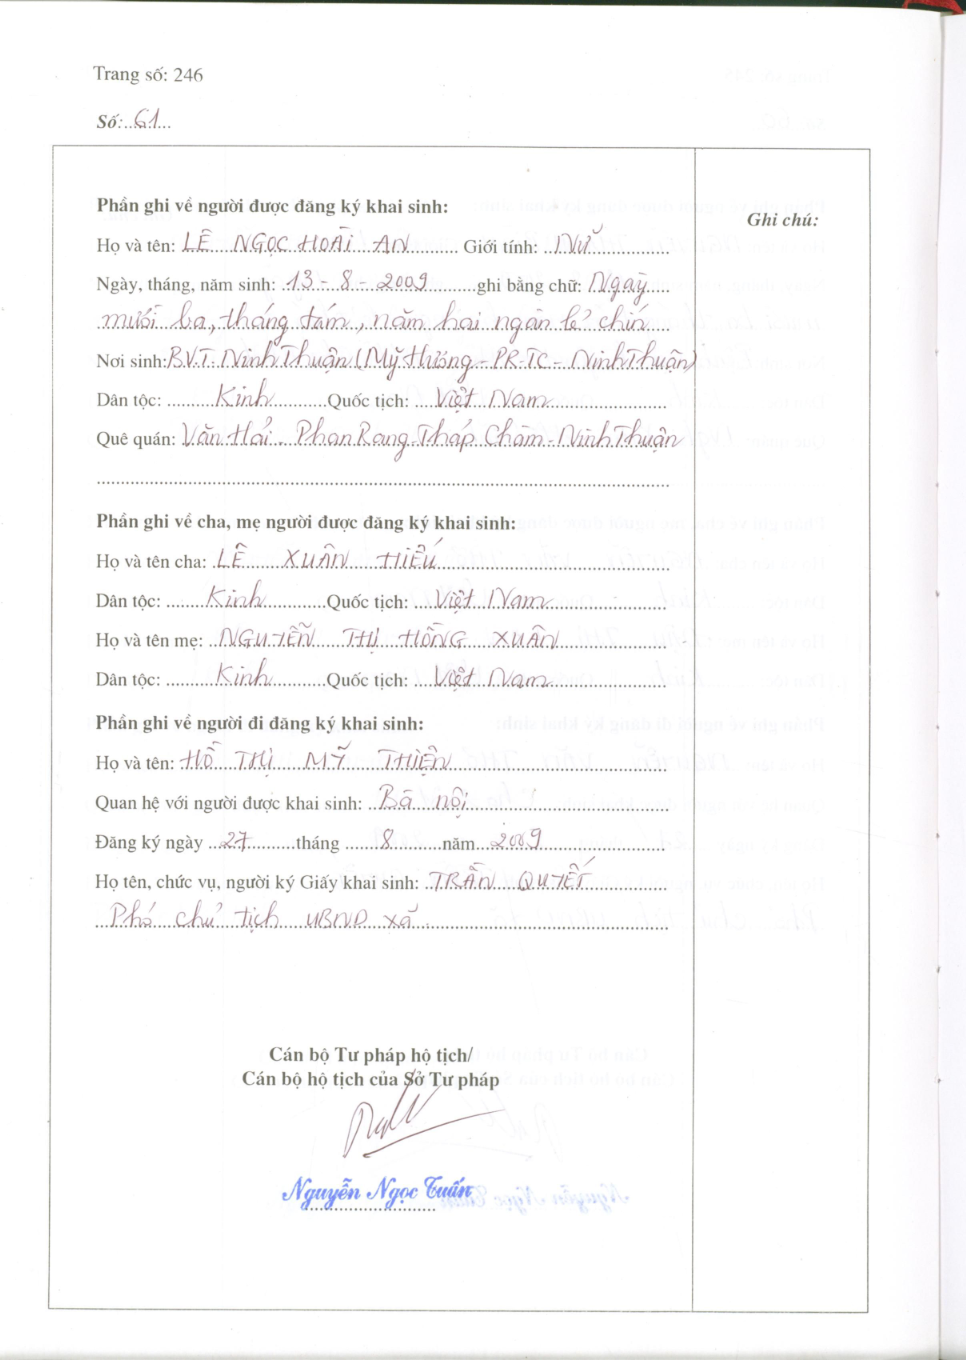 Trang số: 246
Số: 61
Phần ghi về người được đăng ký khai sinh:
Ghi chú:
Họ và tên: LÊ NGỌC HOÀI AN Giới tính: Nữ
Ngày, tháng, năm sinh: 13 - 8 - 2009 ghi bằng chữ: Ngày
mười ba, tháng tám, năm hai ngàn lẻ chín
Nơi sinh: B.V.T. Ninh Thuận (Mỹ Hương - PR-TC - Ninh Thuận)
Dân tộc: Kinh Quốc tịch: Việt Nam
Quê quán: Văn Hải Phan Rang-Tháp Chàm - Ninh Thuận
Phần ghi về cha, mẹ người được đăng ký khai sinh:
Họ và tên cha: LÊ XUÂN HIẾU
Dân tộc: Kinh Quốc tịch: Việt Nam
Họ và tên mẹ: NGUYỄN THỊ HỒNG XUÂN
Dân tộc: Kinh Quốc tịch: Việt Nam
Phần ghi về người đi đăng ký khai sinh:
Họ và tên: HỒ THỊ MỸ THIỆN
Quan hệ với người được khai sinh: Bà nội
Đăng ký ngày 27 tháng 8 năm 2009
Họ tên, chức vụ, người ký Giấy khai sinh: TRẦN QUYẾT
Phó chủ tịch UBND xã.
Cán bộ Tư pháp hộ tịch/
Cán bộ hộ tịch của Sở Tư pháp
Nguyễn Ngọc Tuấn